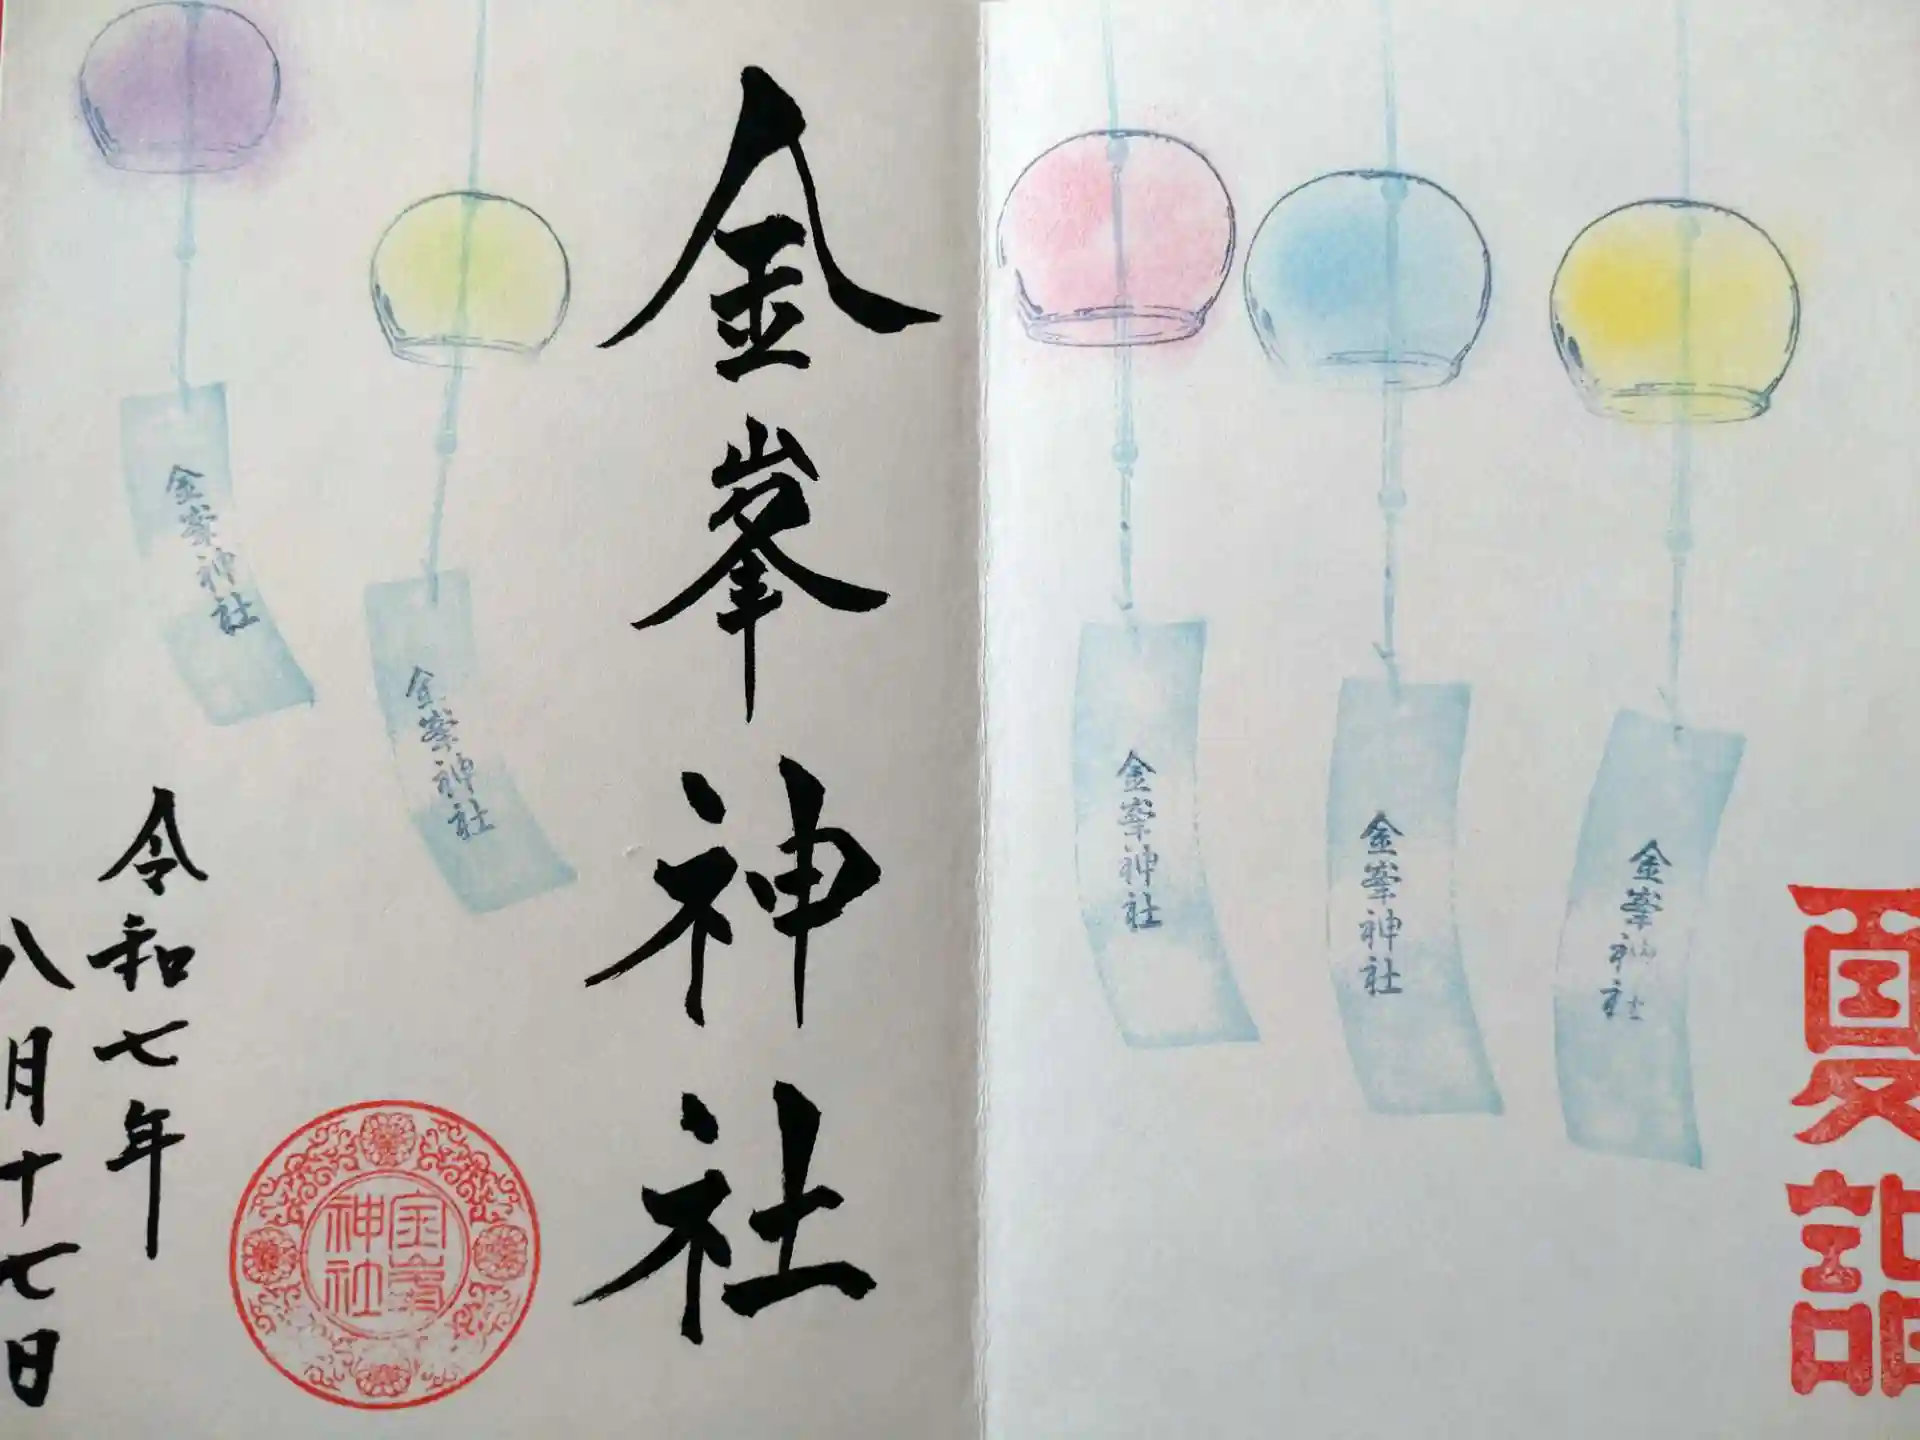 夏詣
金峯神社
金峯神社
金峯神社
金峯神社
金峯神社
金峯神社
金峯
神社
令和七年
八月十七日